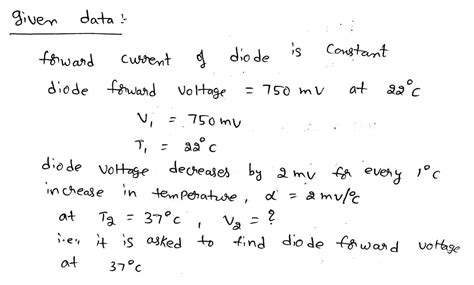 given data :-
forward current of diode is constant
diode forward voltage = 750 mv at 22°c
V₁ = 750 mv
T₁ = 22°c
diode voltage decreases by 2 mv for every 1°c
increase in temperature, α = 2 mv/°c
at T₂ = 37°c , V₂ = ?
i.e, it is asked to find diode forward voltage
at 37°c